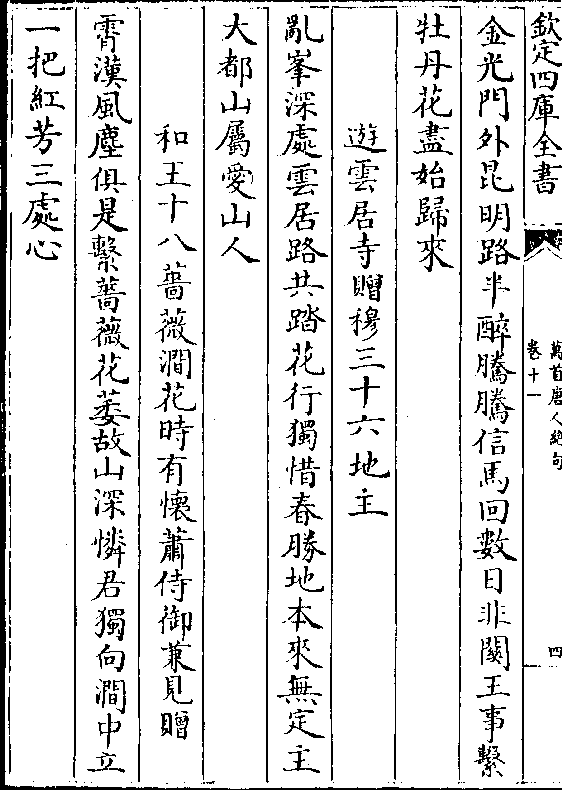 欽定四庫全書
萬首唐人絶句
卷十一
四
金光門外昆明路半醉騰騰信馬回數日非關王事繫
牡丹花盡始歸來
遊雲居寺贈穆三十六地主
亂峯深處雲居路共踏花行獨惜春勝地本來無定主
大都山屬愛山人
和王十八薔薇澗花時有懷蕭侍御兼見贈
霄漢風塵俱是繫薔薇花萎故山深憐君獨向澗中立
一把紅芳三處心